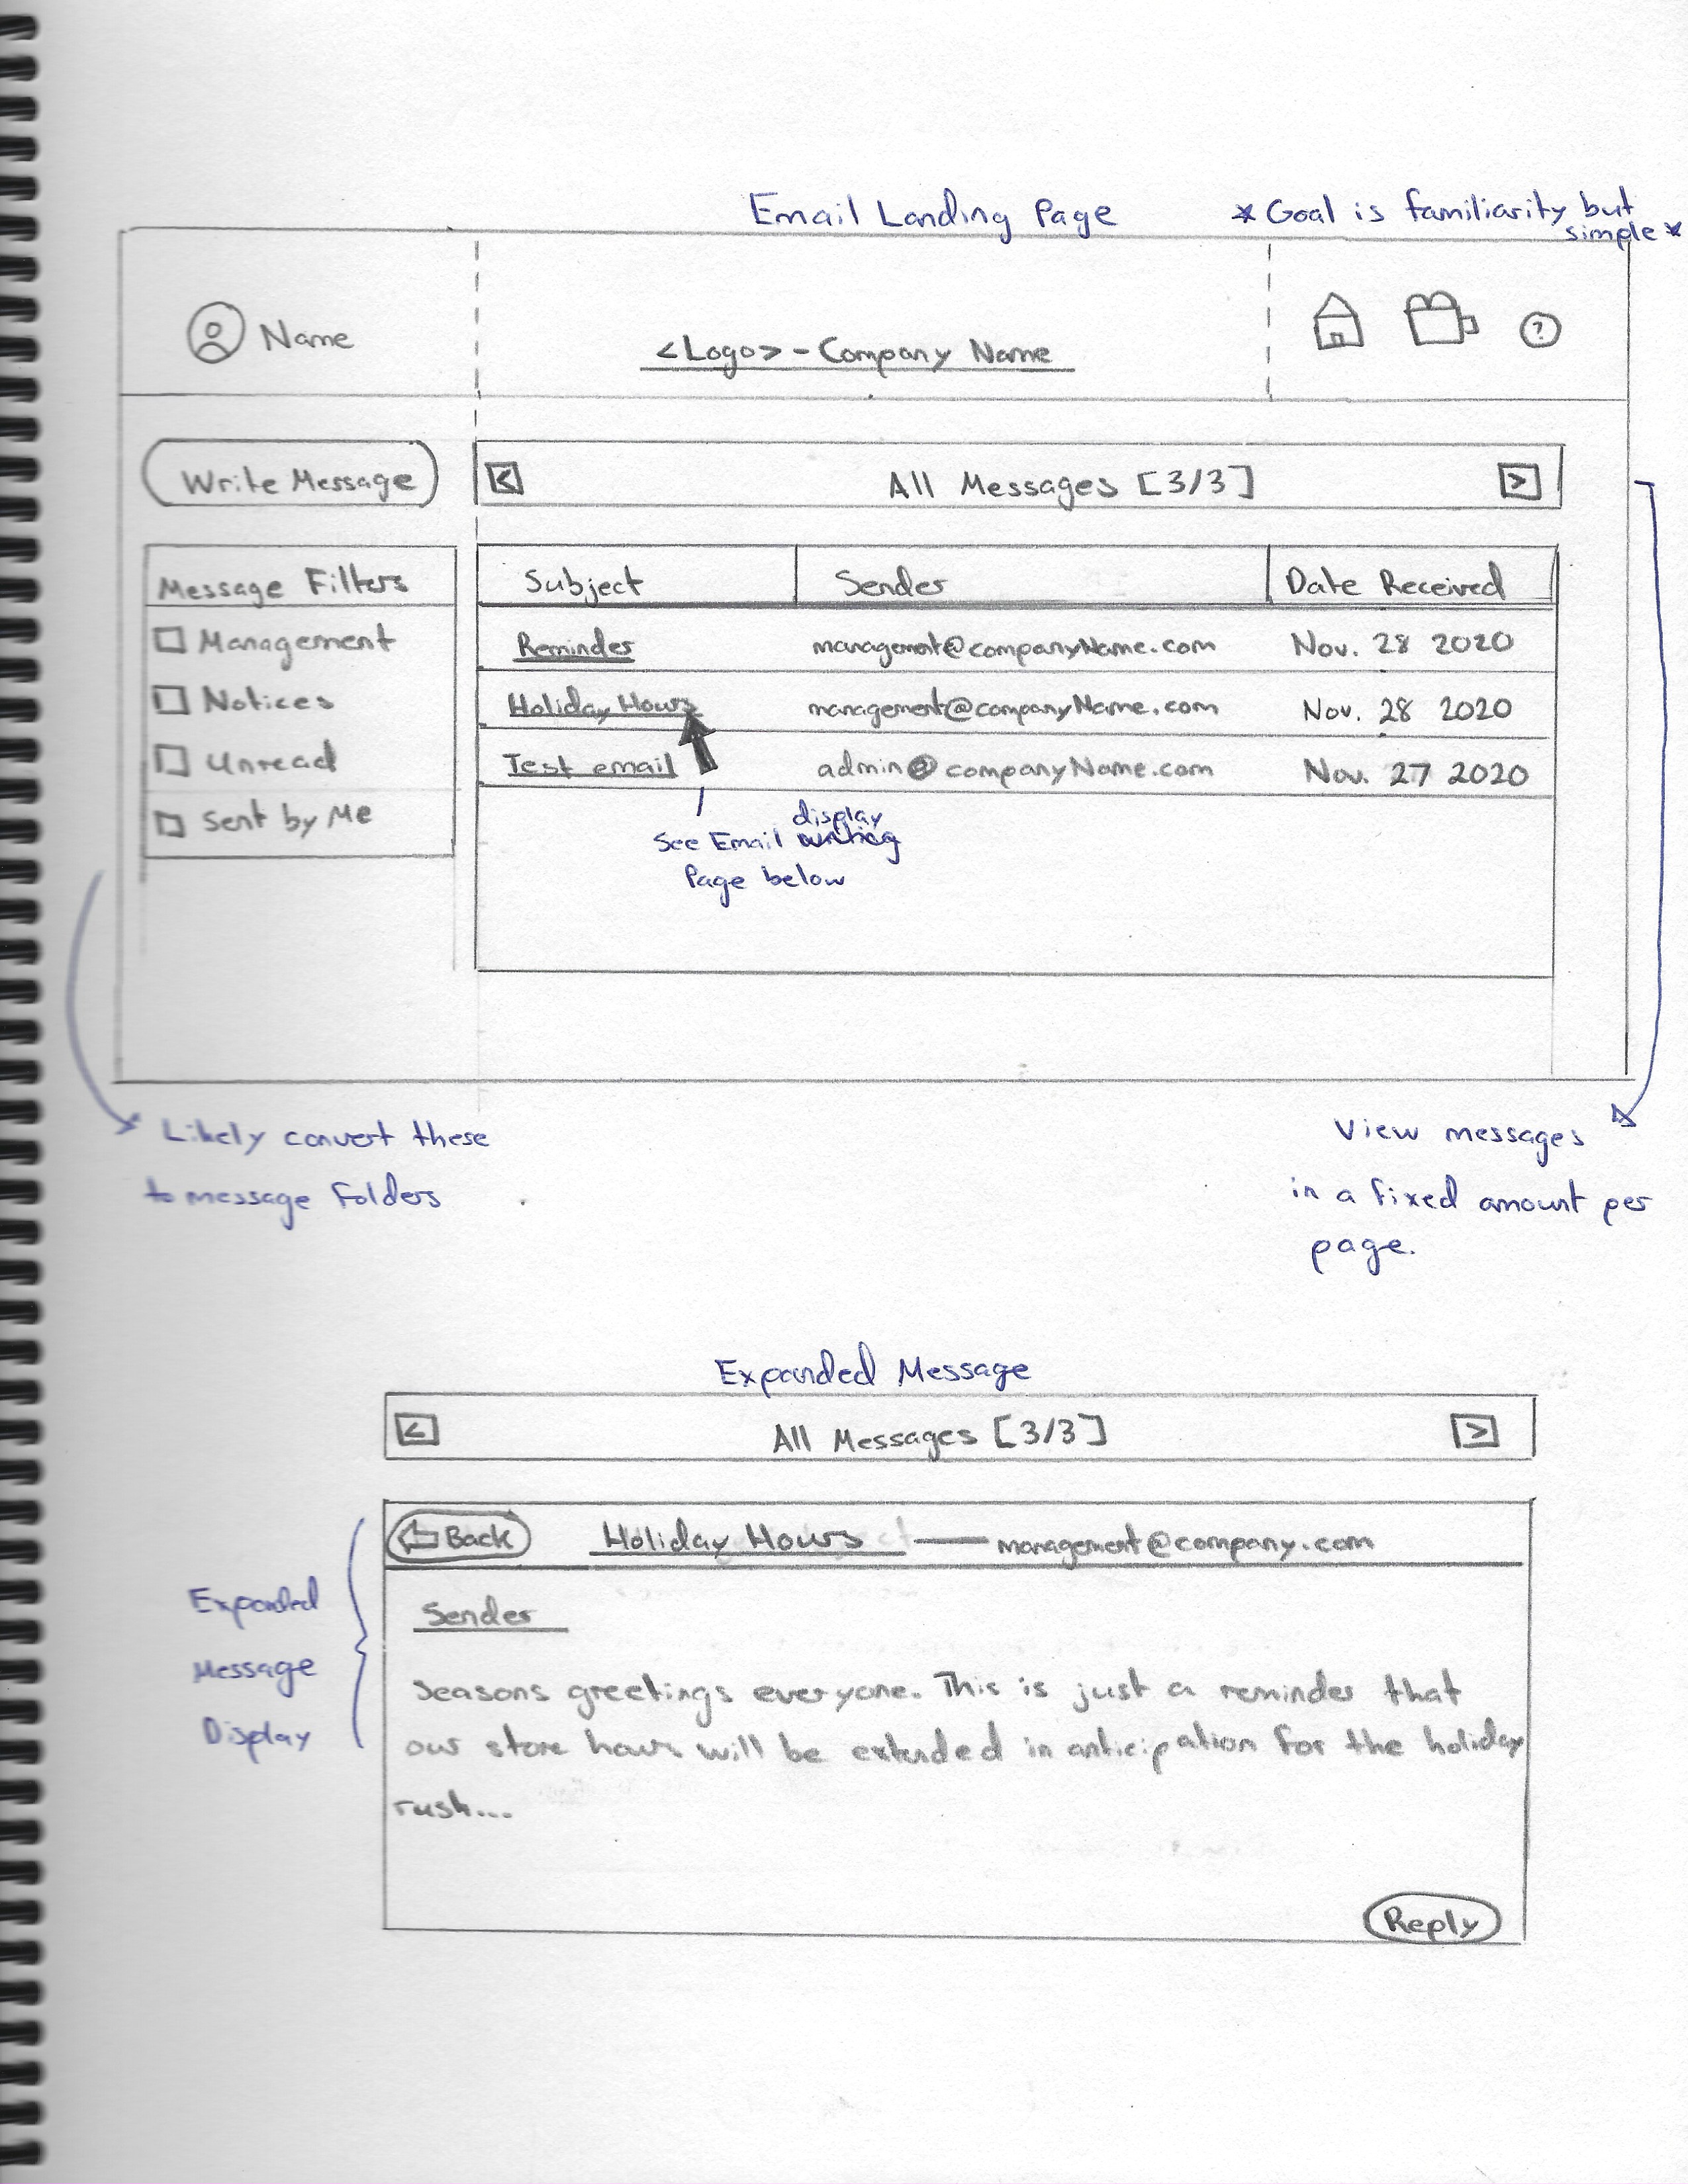 Email Landing Page
* Goal is familiarity but
simple *
Name
<Logo> - Company Name
?
Write Message
<
All Messages [3/3]
>
Message Filters
Management
Notices
Unread
Sent by Me
Subject
Sender
Date Received
Reminder
management@companyName.com
Nov. 28 2020
Holiday Hours
management@companyName.com
Nov. 28 2020
Test email
admin@companyName.com
Nov. 27 2020
display
See Email
Page below
Likely convert these
to message folders
View messages
in a fixed amount per
page.
Expanded Message
<
All Messages [3/3]
>
Back
Holiday Hours
management@company.com
Expanded
Message
Display
Sender
Seasons greetings everyone. This is just a reminder that
our store hours will be extended in anticipation for the holiday
rush...
Reply